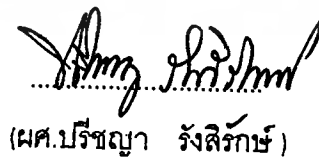 (ผศ.ปรีชญา รังสิรักษ์)